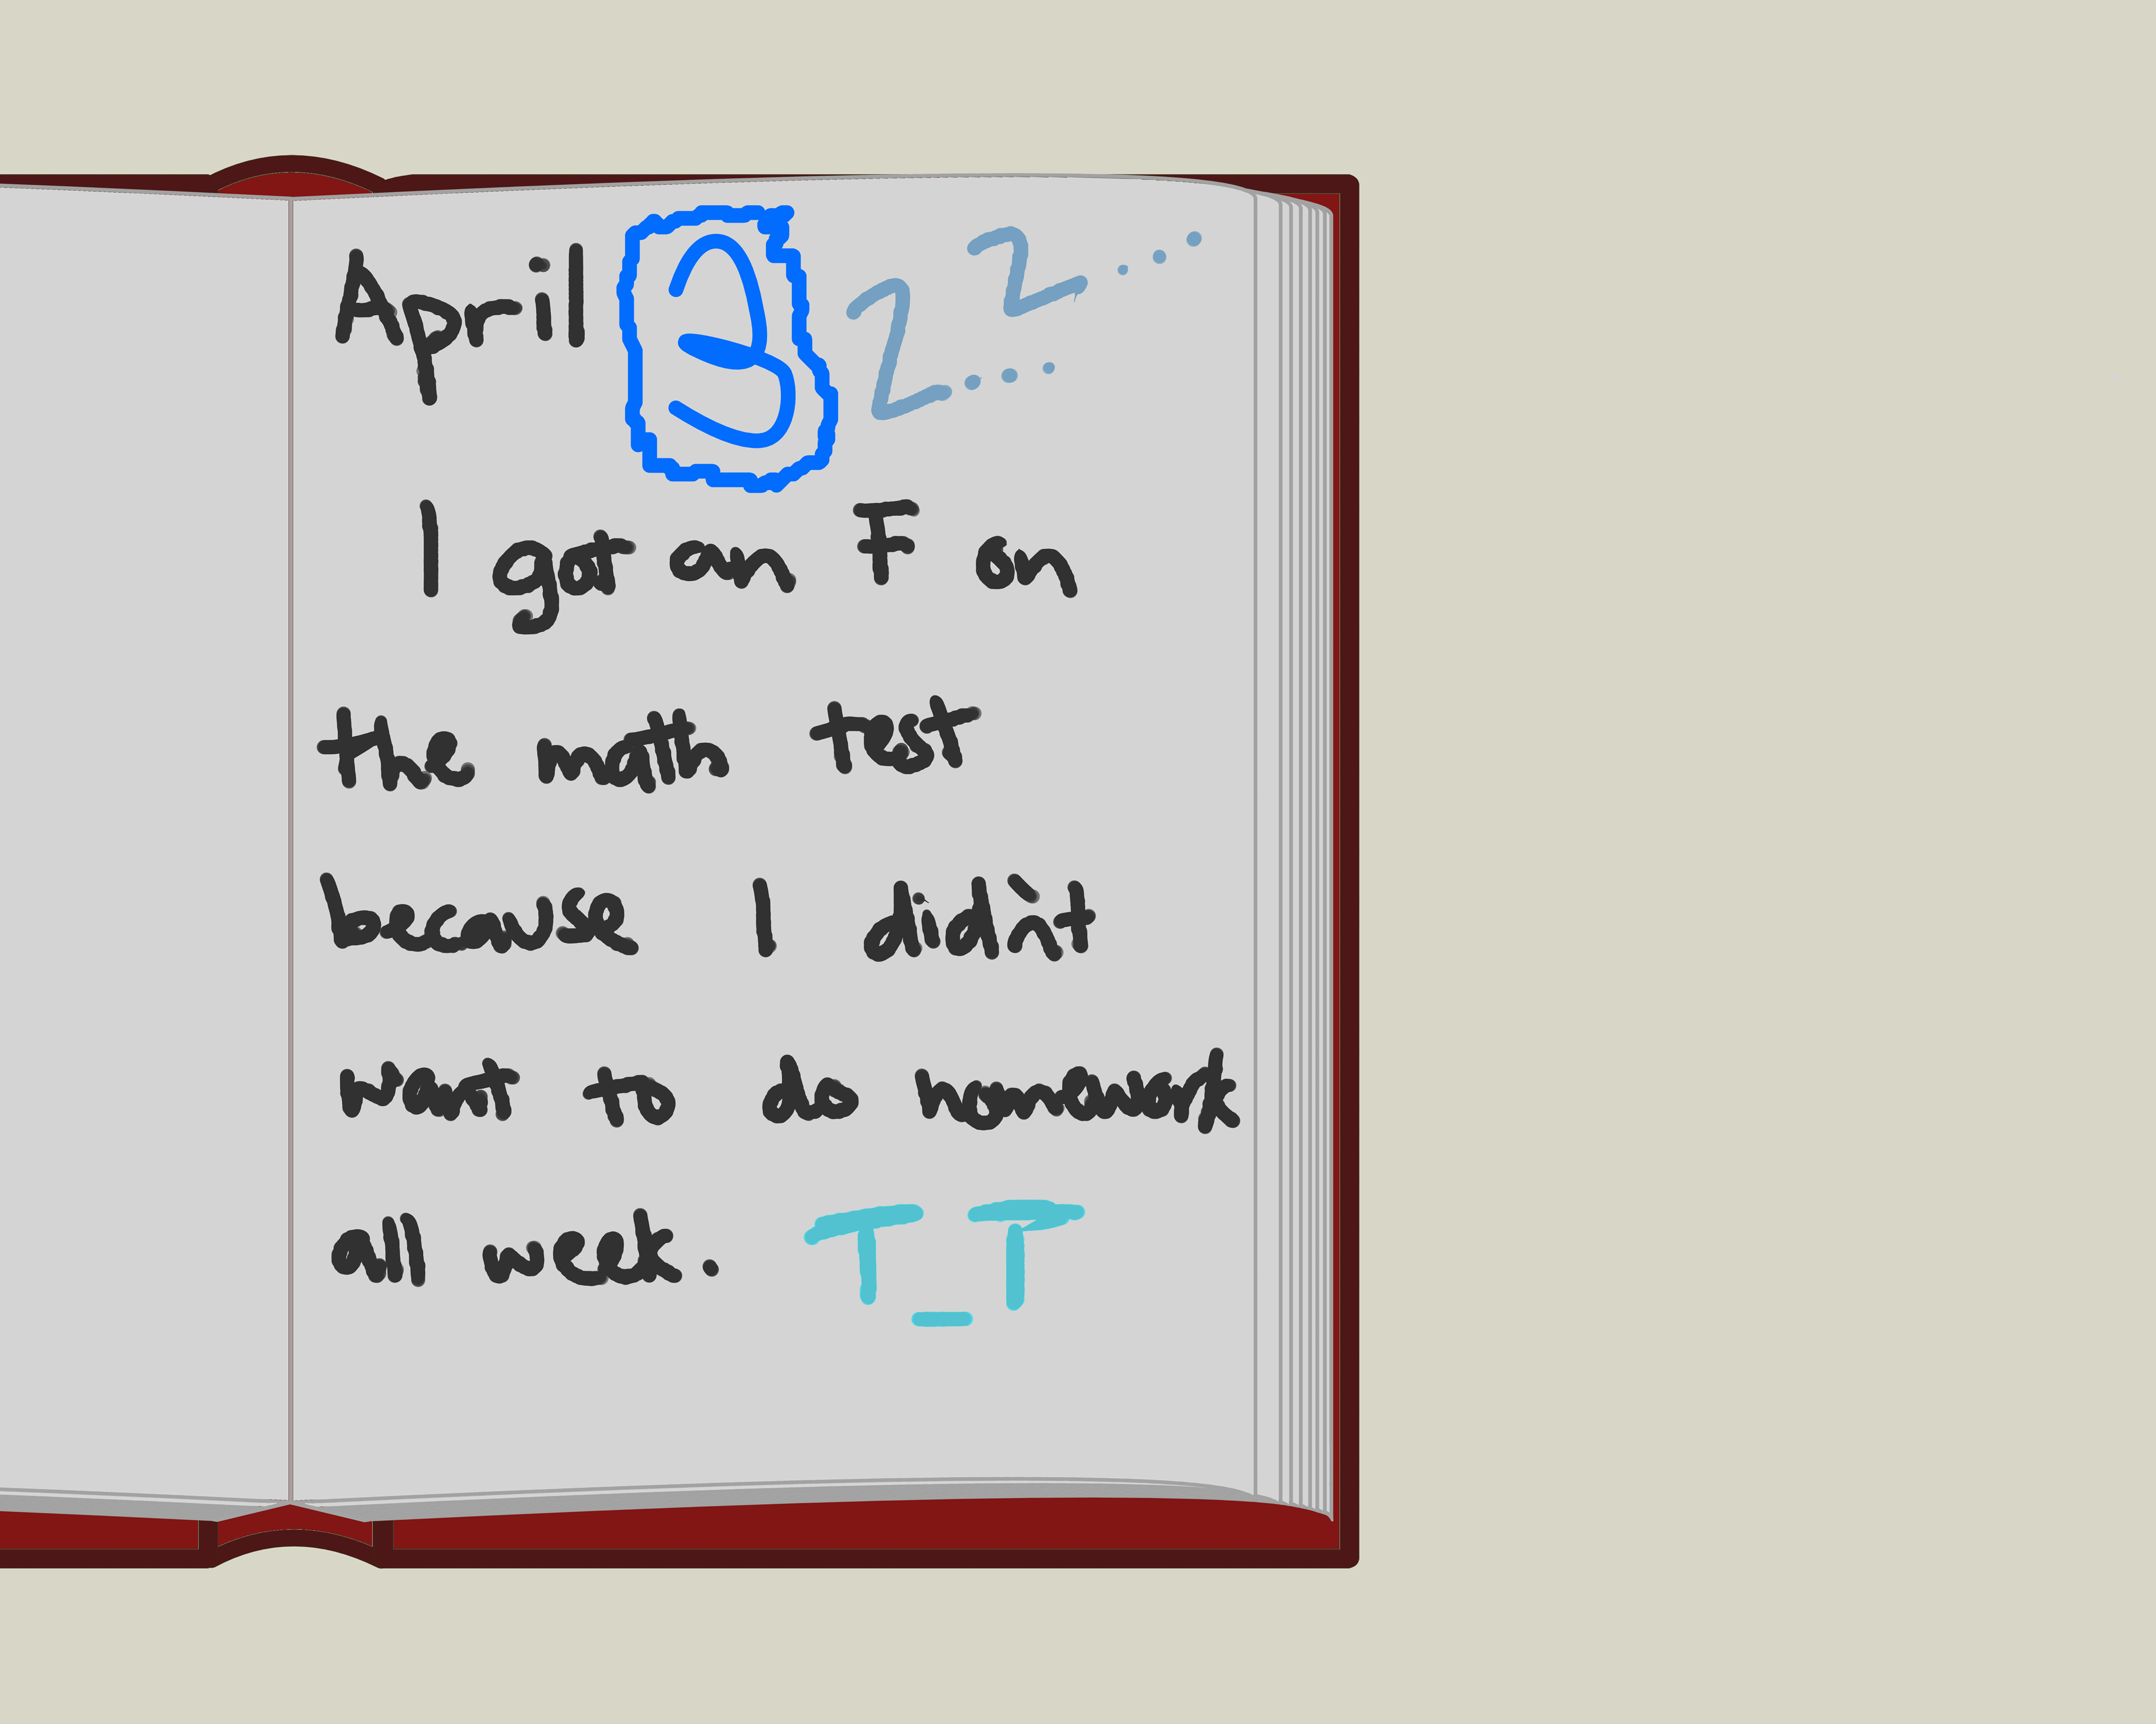 April 3 z... z...
I got an F on
the math test
because I didn't
want to do homework
all week. T_T